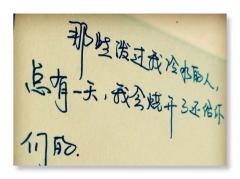 那些泼过我冷水的人，
总有一天，我会烧开了还给你
们的.